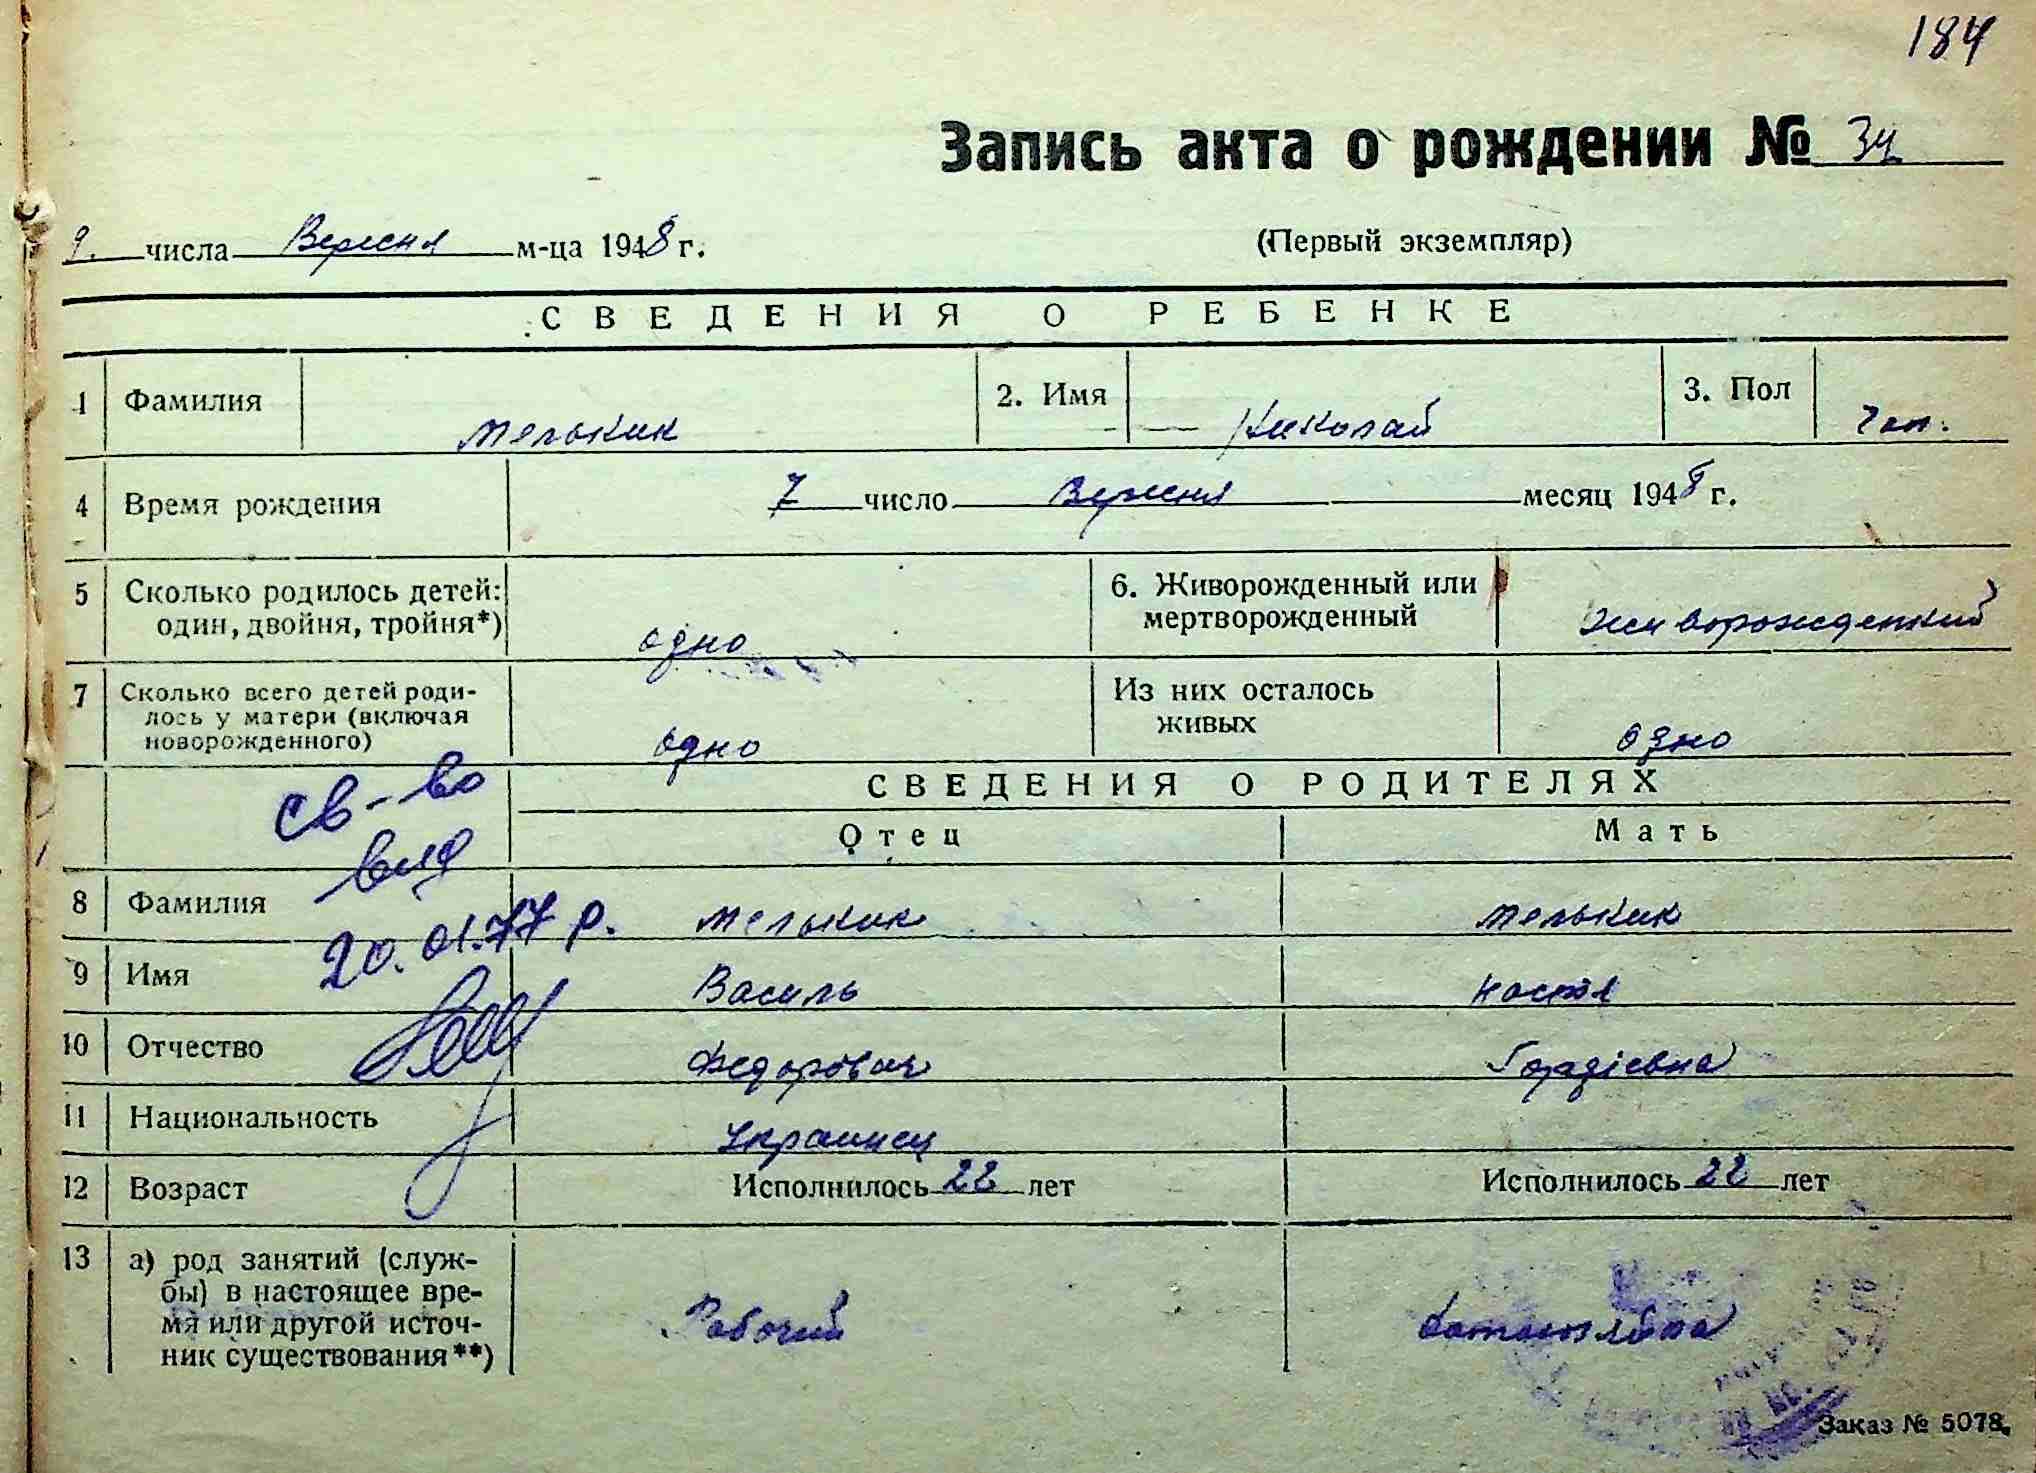 184
Запись акта о рождении № 34
9. числа Вересня м-ца 1948 г. (Первый экземпляр)
СВЕДЕНИЯ О РЕБЕНКЕ
1 Фамилия Мельник 2. Имя Николай 3. Пол Чол.
4 Время рождения 7 число Вересня месяц 1948 г.
5 Сколько родилось детей: один, двойня, тройня*) одно 6. Живорожденный или мертворожденный Живорожденный
7 Сколько всего детей родилось у матери (включая новорожденного) одно Из них осталось живых одно
СВЕДЕНИЯ О РОДИТЕЛЯХ
св-во
Отец Мать
вид
8 Фамилия Мельник Мельник
20.01.77 р.
9 Имя Василь Настя
10 Отчество Федорович Гордіевна
11 Национальность Украинец
12 Возраст Исполнилось 22 лет Исполнилось 22 лет
13 а) род занятий (служ-
бы) в настоящее вре-
мя или другой источ- Рабочий
ник существования**)
Заказ № 5078.